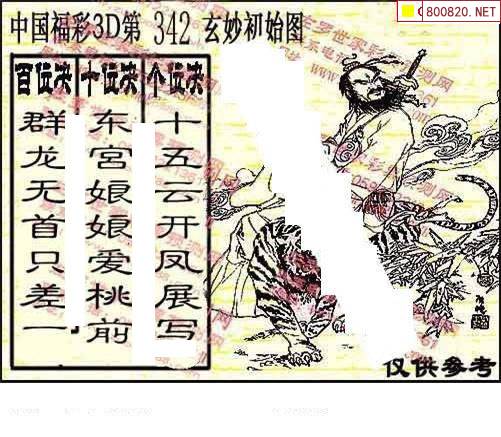 800820.NET
中国福彩3D第 342 玄妙初始图
百位决 十位决 个位决
群龙无首只差一
东宫娘娘爱桃前
十五云开凤展写
仅供参考